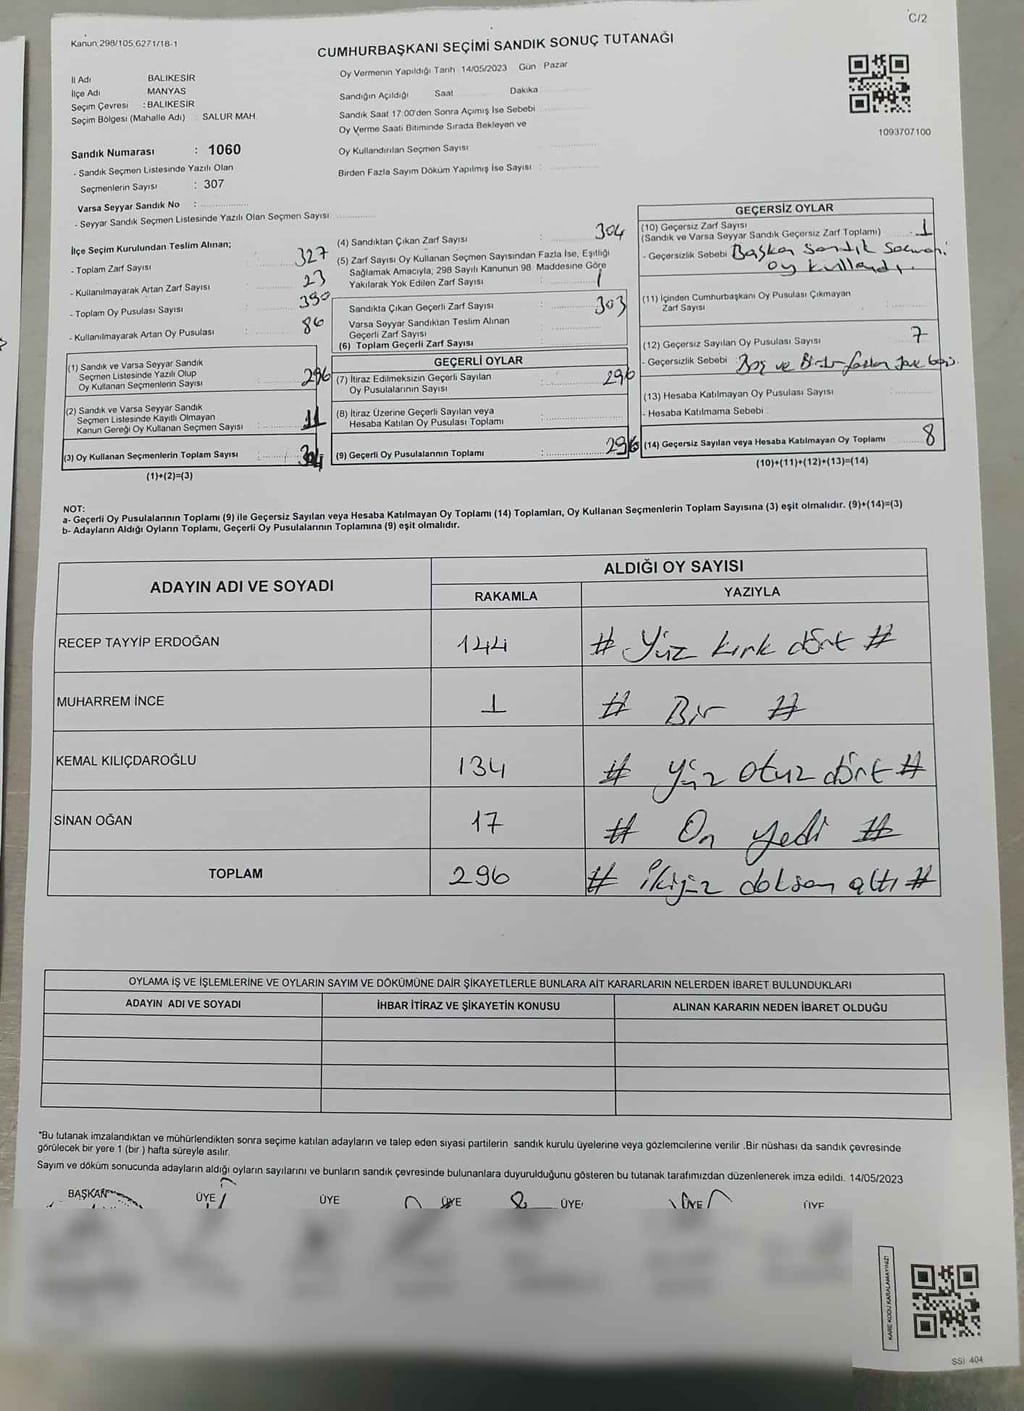 C/2
Kanun 298/105,6271/18-1
CUMHURBAŞKANI SEÇİMİ SANDIK SONUÇ TUTANAĞI
İl Adı BALIKESİR
İlçe Adı MANYAS
Seçim Çevresi : BALIKESİR
Seçim Bölgesi (Mahalle Adı) SALUR MAH
Sandık Numarası : 1060
- Sandık Seçmen Listesinde Yazılı Olan
Seçmenlerin Sayısı : 307
Varsa Seyyar Sandık No :
- Seyyar Sandık Seçmen Listesinde Yazılı Olan Seçmen Sayısı
Oy Vermenin Yapıldığı Tarih 14/05/2023 Gün Pazar
Sandığın Açıldığı Saat Dakika
Sandık Saat 17:00'den Sonra Açımış İse Sebebi
Oy Verme Saati Bitiminde Sırada Bekleyen ve
Oy Kullandırılan Seçmen Sayısı
Birden Fazla Sayım Döküm Yapılmış İse Sayısı :
1093707100
İlçe Seçim Kurulundan Teslim Alınan;
- Toplam Zarf Sayısı 327
- Kullanılmayarak Artan Zarf Sayısı 23
- Toplam Oy Pusulası Sayısı 390
- Kullanılmayarak Artan Oy Pusulası : 86
(1) Sandık ve Varsa Seyyar Sandık
Seçmen Listesinde Yazılı Olup
Oy Kullanan Seçmenlerin Sayısı 296
(2) Sandık ve Varsa Seyyar Sandık
Seçmen Listesinde Kayıtlı Olmayan
Kanun Gereği Oy Kullanan Seçmen Sayısı : 11
(3) Oy Kullanan Seçmenlerin Toplam Sayısı : 304
(1)+(2)=(3)
(4) Sandıktan Çıkan Zarf Sayısı : 304
(5) Zarf Sayısı Oy Kullanan Seçmen Sayısından Fazla İse, Eşitliği
Sağlamak Amacıyla; 298 Sayılı Kanunun 98. Maddesine Göre
Yakılarak Yok Edilen Zarf Sayısı : 1
Sandıkta Çıkan Geçerli Zarf Sayısı : 303
Varsa Seyyar Sandıktan Teslim Alınan
Geçerli Zarf Sayısı
(6) Toplam Geçerli Zarf Sayısı
GEÇERLİ OYLAR
(7) İtiraz Edilmeksizin Geçerli Sayılan
Oy Pusulalarının Sayısı : 296
(8) İtiraz Üzerine Geçerli Sayılan veya
Hesaba Katılan Oy Pusulası Toplamı :
(9) Geçerli Oy Pusulalarının Toplamı : 296
GEÇERSİZ OYLAR
(10) Geçersiz Zarf Sayısı
(Sandık ve Varsa Seyyar Sandık Geçersiz Zarf Toplamı) 1
- Geçersizlik Sebebi Başka Sandık Seçmeni
oy kullandı.
(11) İçinden Cumhurbaşkanı Oy Pusulası Çıkmayan
Zarf Sayısı
(12) Geçersiz Sayılan Oy Pusulası Sayısı 7
- Geçersizlik Sebebi : Boş ve Birden fazla
(13) Hesaba Katılmayan Oy Pusulası Sayısı
- Hesaba Katılmama Sebebi
(14) Geçersiz Sayılan veya Hesaba Katılmayan Oy Toplamı 8
(10)+(11)+(12)+(13)=(14)
NOT:
a- Geçerli Oy Pusulalarının Toplamı (9) ile Geçersiz Sayılan veya Hesaba Katılmayan Oy Toplamı (14) Toplamları, Oy Kullanan Seçmenlerin Toplam Sayısına (3) eşit olmalıdır. (9)+(14)=(3)
b- Adayların Aldığı Oyların Toplamı, Geçerli Oy Pusulalarının Toplamına (9) eşit olmalıdır.
ADAYIN ADI VE SOYADI ALDIĞI OY SAYISI
RAKAMLA YAZIYLA
RECEP TAYYİP ERDOĞAN 144 # Yüz kırk dört #
MUHARREM İNCE 1 # Bir #
KEMAL KILIÇDAROĞLU 134 # yüz otuz dört #
SİNAN OĞAN 17 # On yedi #
TOPLAM 296 # ikiyüz doksan altı #
OYLAMA İŞ VE İŞLEMLERİNE VE OYLARIN SAYIM VE DÖKÜMÜNE DAİR ŞİKAYETLERLE BUNLARA AİT KARARLARIN NELERDEN İBARET BULUNDUKLARI
ADAYIN ADI VE SOYADI İHBAR İTİRAZ VE ŞİKAYETİN KONUSU ALINAN KARARIN NEDEN İBARET OLDUĞU
*Bu tutanak imzalandıktan ve mühürlendikten sonra seçime katılan adayların ve talep eden siyasi partilerin sandık kurulu üyelerine veya gözlemcilerine verilir .Bir nüshası da sandık çevresinde
görülecek bir yere 1 (bir ) hafta süreyle asılır.
Sayım ve döküm sonucunda adayların aldığı oyların sayılarını ve bunların sandık çevresinde bulunanlara duyurulduğunu gösteren bu tutanak tarafımızdan düzenlenerek imza edildi. 14/05/2023
BAŞKAN ÜYE ÜYE ÜYE ÜYE ÜYE ÜYE
KARE KODU KARALAMAYINIZ!
SSİ 404